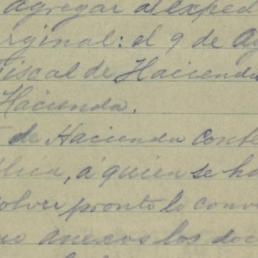 agregar al exped
rginal: el 9 de Ag
Fiscal de Hacienda
Hacienda.
de Hacienda conte
blica, á quien se ha
solver pronto lo conv
no anexos los doc